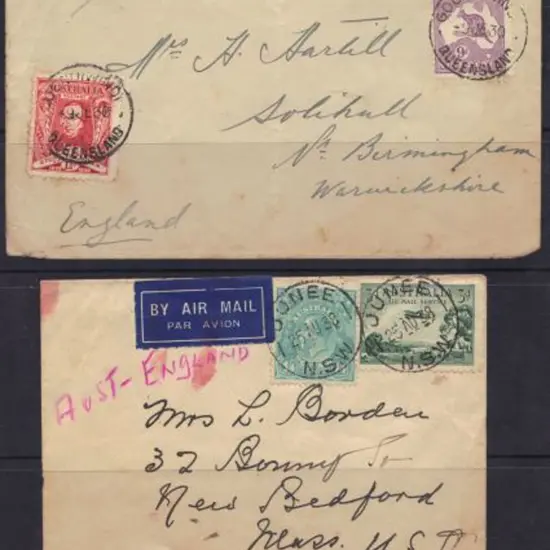 QUEENSLAND
30
9
AUSTRALIA
30
QUEENSLAND
Mrs H. Hartill
Solihull
Nr Birmingham
Warwickshire
England
BY AIR MAIL
PAR AVION
JUNEE
N.S.W
3D
AIR MAIL SERVICE
JUNEE
N.S.W
AUST-ENGLAND
Mrs L. Borden
32 Bonney St
New Bedford
Mass. U.S.A